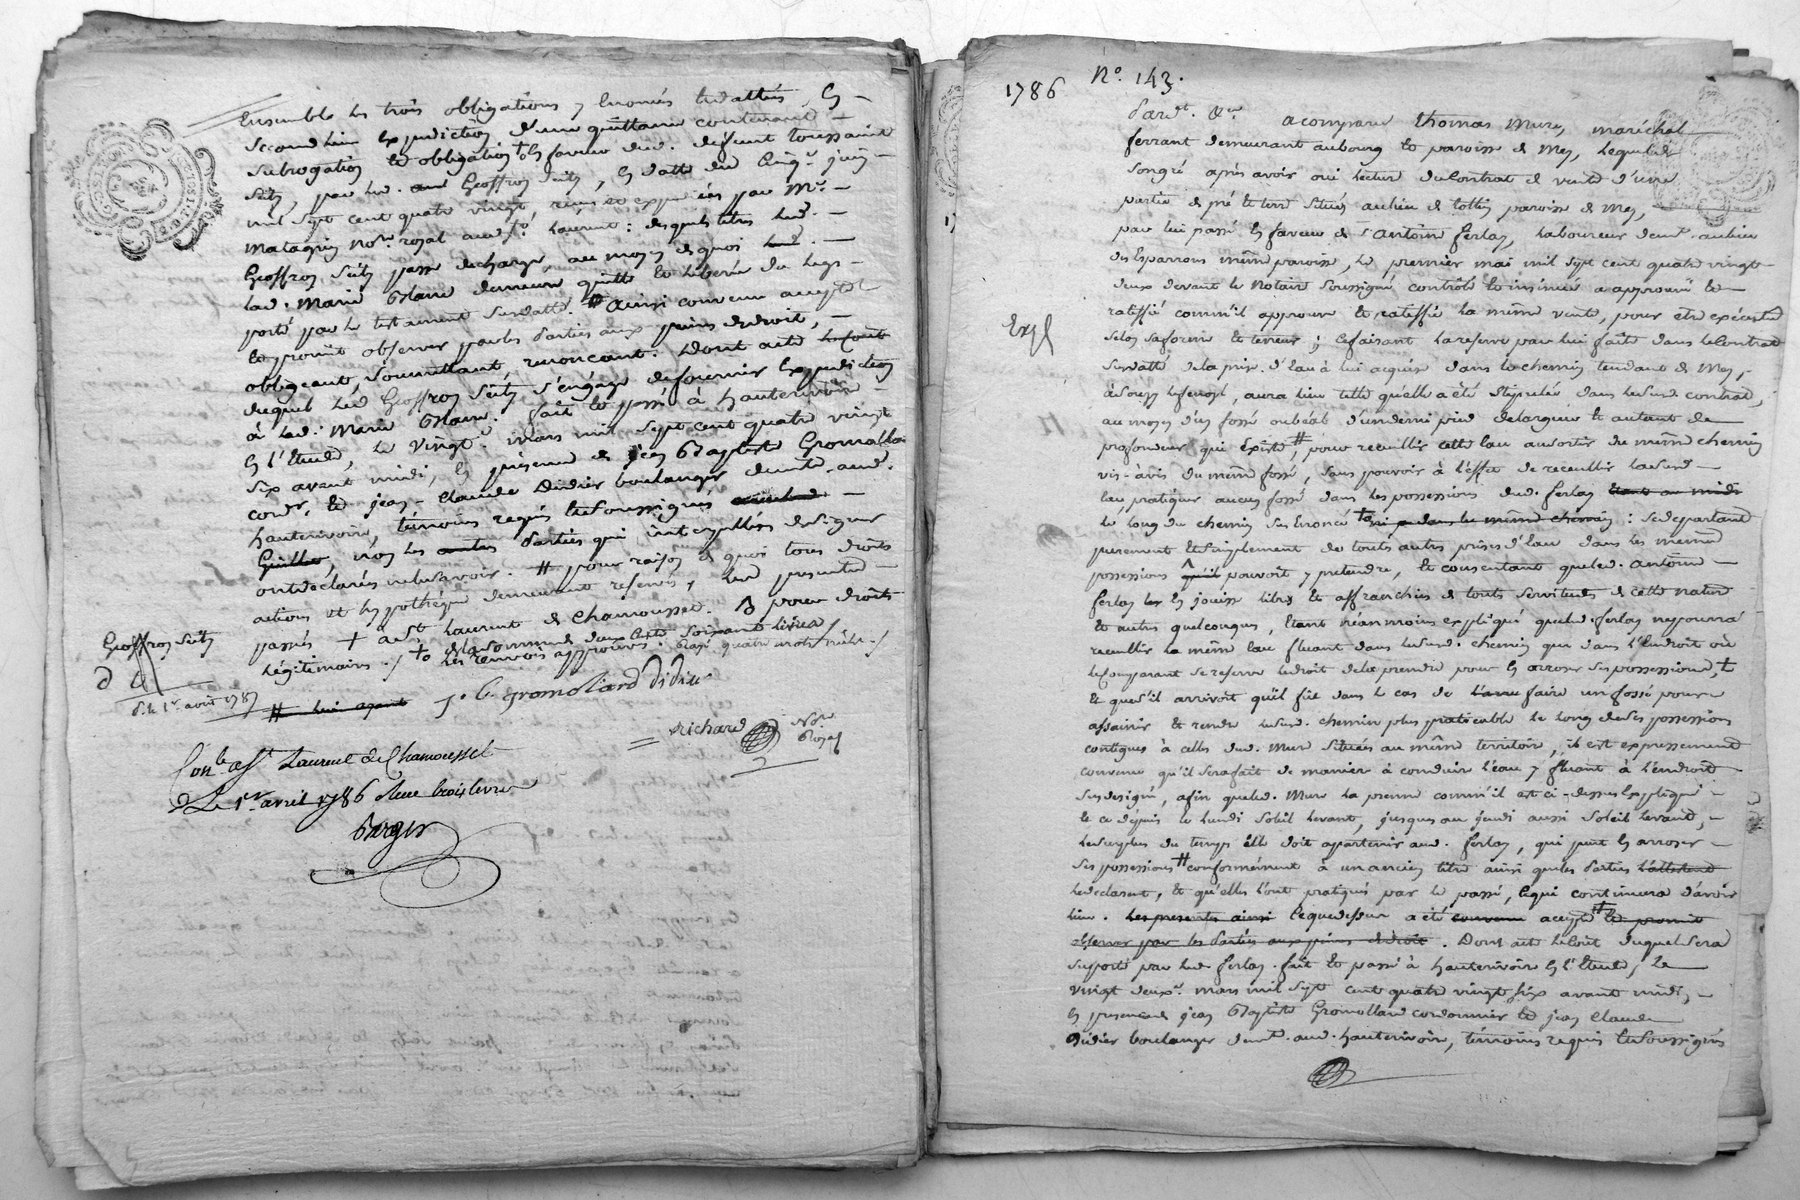 Ensemble les trois obligations y Enoncées Sus dattées, En
Second lieu Expédiction d'une quittance contenant
Subrogation Et obligation En faveur dud. défunt toussaint
Seity, par led. Geoffroy Seity, En datte du Cinq. juin
mil sept cent quatre vingt reçue et expédiée par Me.
Matagrin nore. royal aud. St. Laurent: desquels titres led.
Geoffroy Seity passe decharge, au moyen de quoi
lad. Marie Blanc demeure quitte Et libérée du legs
porté par le testament Susdatté. # ainsi convenu accepté
Et promit observer par les Parties aux peines de droit,
obligeant, Soumettant, renonçant. Dont acte
duquel led. Geoffroy Seity s'engage de fournir Expédiction
à lad. Marie Blanc. fait Et passé à hauterivoire
En l'Etude, le vingt. mars mil sept cent quatre vingt
Six avant midi, En présence de jean Baptiste Gromollard
cordr. Et jean-Claude Didier boulanger demt. aud.
hauterivoire, témoins requis Et Soussignés
non les Parties qui interpellées de signer
ont déclarés ne le savoir. # pour raison de quoi tous droits
actions et hypothèque demeurent réservés, led. present
passés + a St Laurent de Chamousset. pour droits
Légitimaires./. to de la somme de deux Cents Soixante livres/
les renvois approuvés. Rayé quatre mots nuls./.
Geoffroy Seity
d
d. le 1er avril 1787
# lui ayant
J. b. gromoliard Didier
Richard Nore
Royal
Conlé. à St. Laurent de Chamousset
Le 1er. avril 1786 Reçu trois livres
Barger
1786 No. 143.
Pardt. &a a comparu thomas Mure, maréchal
ferrant demeurant au bourg Et paroisse de Mey, lequel de
Son gré après avoir oui lecture du Contrat de vente d'une
partie de pré Et terre Situés au lieu de paroisse de Mey,
par lui passé En faveur de s. Antoine ferlay, laboureur demt. au lieu
des Esparrons même paroisse, le premier mai mil sept cent quatre vingt
deux devant le Notaire Soussigné contrôlé Et insinué a approuvé Et
Exp
ratiffié comm'il approuve Et ratiffie la même vente, pour être exécutée
Selon Sa forme Et teneur; Ce faisant la réserve par lui faite dans le Contrat
Susdatté de la prise d'Eau à lui acquise dans le chemin tendant de Mey,
à Souzy, aura lieu telle qu'elle a été Stipulée dans le Susd. contrat,
au moyen d'un fossé ou béal d'un demi pied de largeur Et autant de
profondeur qui Existe, # pour recueillir cette Eau au sortir du même chemin
vis-à-vis du même fossé, Sans pouvoir à l'Effet de recueillir la Susd.
Eau pratiquer aucun fossé dans les possessions dud. ferlay Etant au midi
le long du chemin Sus Enoncé to ni dans le même chemin: Se départant
purement Et Simplement de toutes autres prises d'Eau dans les mêmes
possessions qu'il pouvoit y pretendre, Et consentant que led. antoine
ferlay En jouisse libre Et affranchies de toute Servitude de cette nature
Et autres quelconques, Etant néanmoins expliqué que led. ferlay ne pourra
recueillir la même Eau fluant dans le Susd. chemin que dans l'Endroit où
le Comparant se reserve le droit de la prendre pour En arroser Ses possessions, +
Et que s'il arrivoit qu'il fût dans le cas de faire un fossé pour
assainir Et rendre le Susd. chemin plus praticable le long de Ses possessions
contigues à celles dud. Mure Situées au même territoire, il est expressement
convenu qu'il Sera fait de manière à conduire l'eau y fluant à l'endroit
Susdesigné, afin que led. Mure la prenne comm'il est ci-dessus Expliqué
Et ce depuis le lundi Soleil levant, jusques au jeudi aussi Soleil levant,
le Surplus du temps Elle doit appartenir aud. ferlay, qui peut En arroser
Ses possessions # conformément à un ancien titre ainsi que les Parties
le déclarent, Et qu'elles l'ont pratiqué par le passé, ce qui continuera d'avoir
lieu. Les presentes ainsi Ce que dessus a été convenu accepté Et promit
observer par les Parties aux peines de droit. Dont acte le Coût duquel Sera
Supporté par led. ferlay. fait Et passé à hauterivoire En l'Etude, Le
vingt deuxe. mars mil Sept Cent quatre vingt Six avant midi,
En presence de jean Baptiste Gromollard cordonnier Et jean Claude
Didier boulanger demts. aud. hauterivoire, témoins requis Et Soussignés